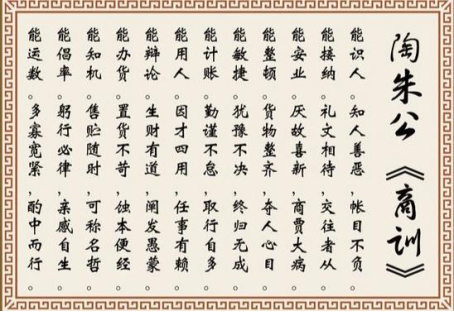 陶朱公《商训》
能识人。知人善恶,帐目不负。
能接纳。礼文相待,交往者从。
能安业。厌故喜新,商贾大病。
能整顿。货物整齐,夺人心目。
能敏捷。犹豫不决,终归无成。
能计账。勤谨不怠,取行自多。
能用人。因才四用,任事有赖。
能辩论。生财有道,阐发愚蒙。
能办货。置货不苛,蚀本便经。
能知机。售贮随时,可称名哲。
能倡率。躬行必律,亲感自生。
能运数。多寡宽紧,酌中而行。